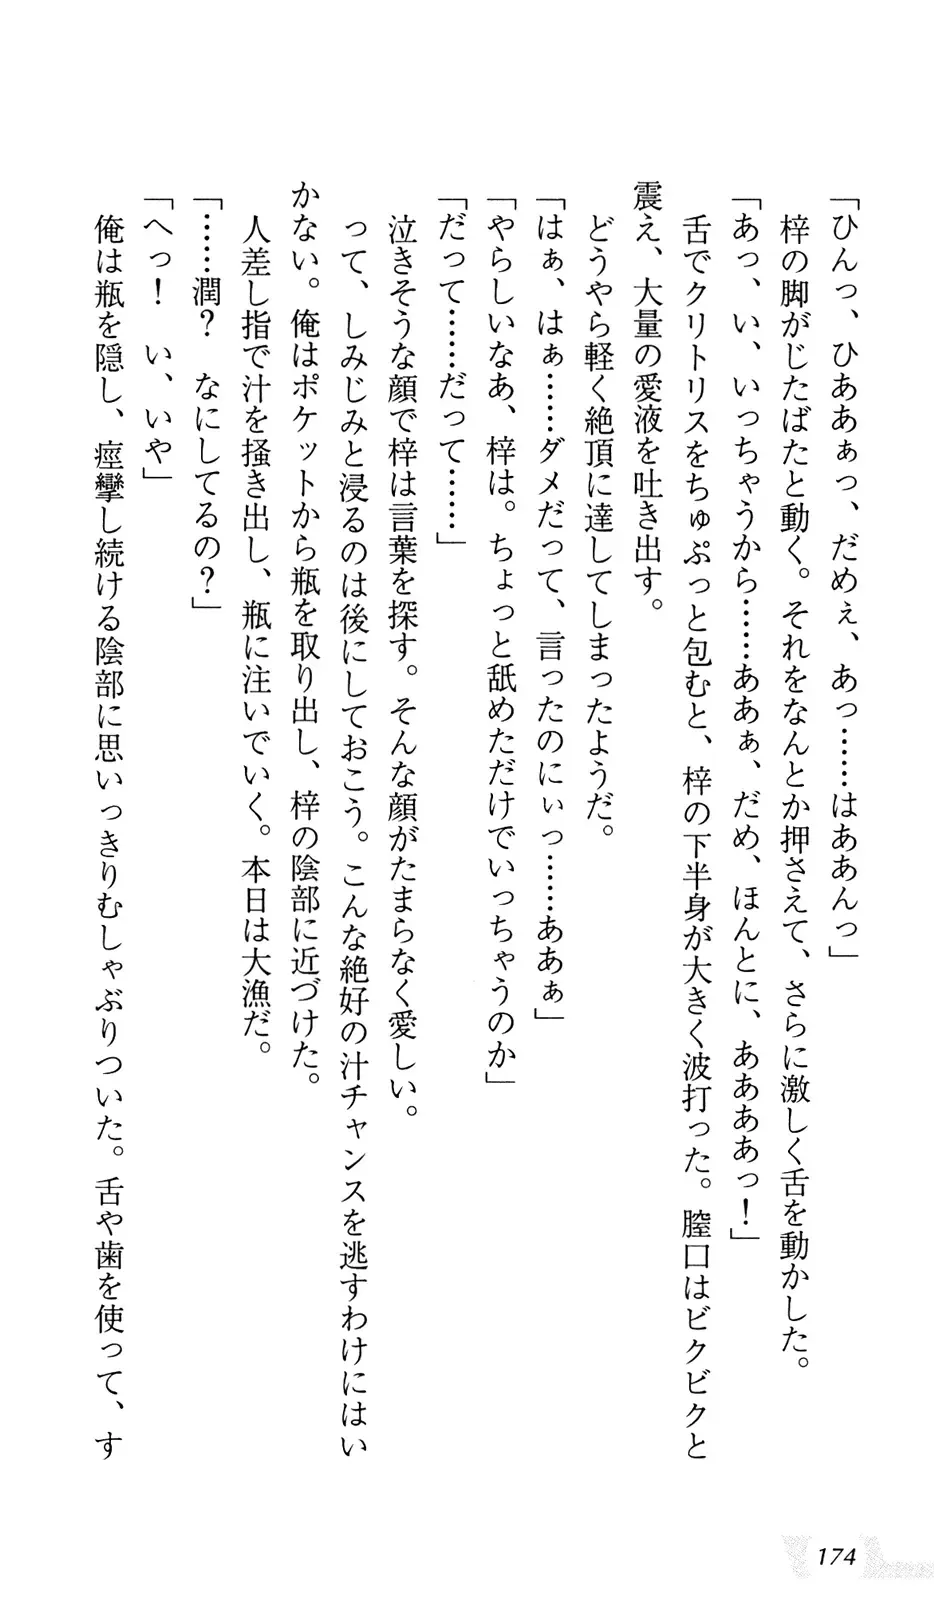 「ひんっ、ひああぁっ、だめぇ、あっ……はああんっ」
　梓の脚がじたばたと動く。それをなんとか押さえて、さらに激しく舌を動かした。
「あっ、い、いっちゃうから……ああぁ、だめ、ほんとに、ああああっ！」
　舌でクリトリスをちゅぷっと包むと、梓の下半身が大きく波打った。膣口はビクビクと
震え、大量の愛液を吐き出す。
　どうやら軽く絶頂に達してしまったようだ。
「はぁ、はぁ……ダメだって、言ったのにぃっ……ああぁ」
「やらしいなあ、梓は。ちょっと舐めただけでいっちゃうのか」
「だって……だって……」
　泣きそうな顔で梓は言葉を探す。そんな顔がたまらなく愛しい。
　って、しみじみと浸るのは後にしておこう。こんな絶好の汁チャンスを逃すわけにはい
かない。俺はポケットから瓶を取り出し、梓の陰部に近づけた。
　人差し指で汁を掻き出し、瓶に注いでいく。本日は大漁だ。
「……潤？　なにしてるの？」
「へっ！　い、いや」
　俺は瓶を隠し、痙攣し続ける陰部に思いっきりむしゃぶりついた。舌や歯を使って、す
174